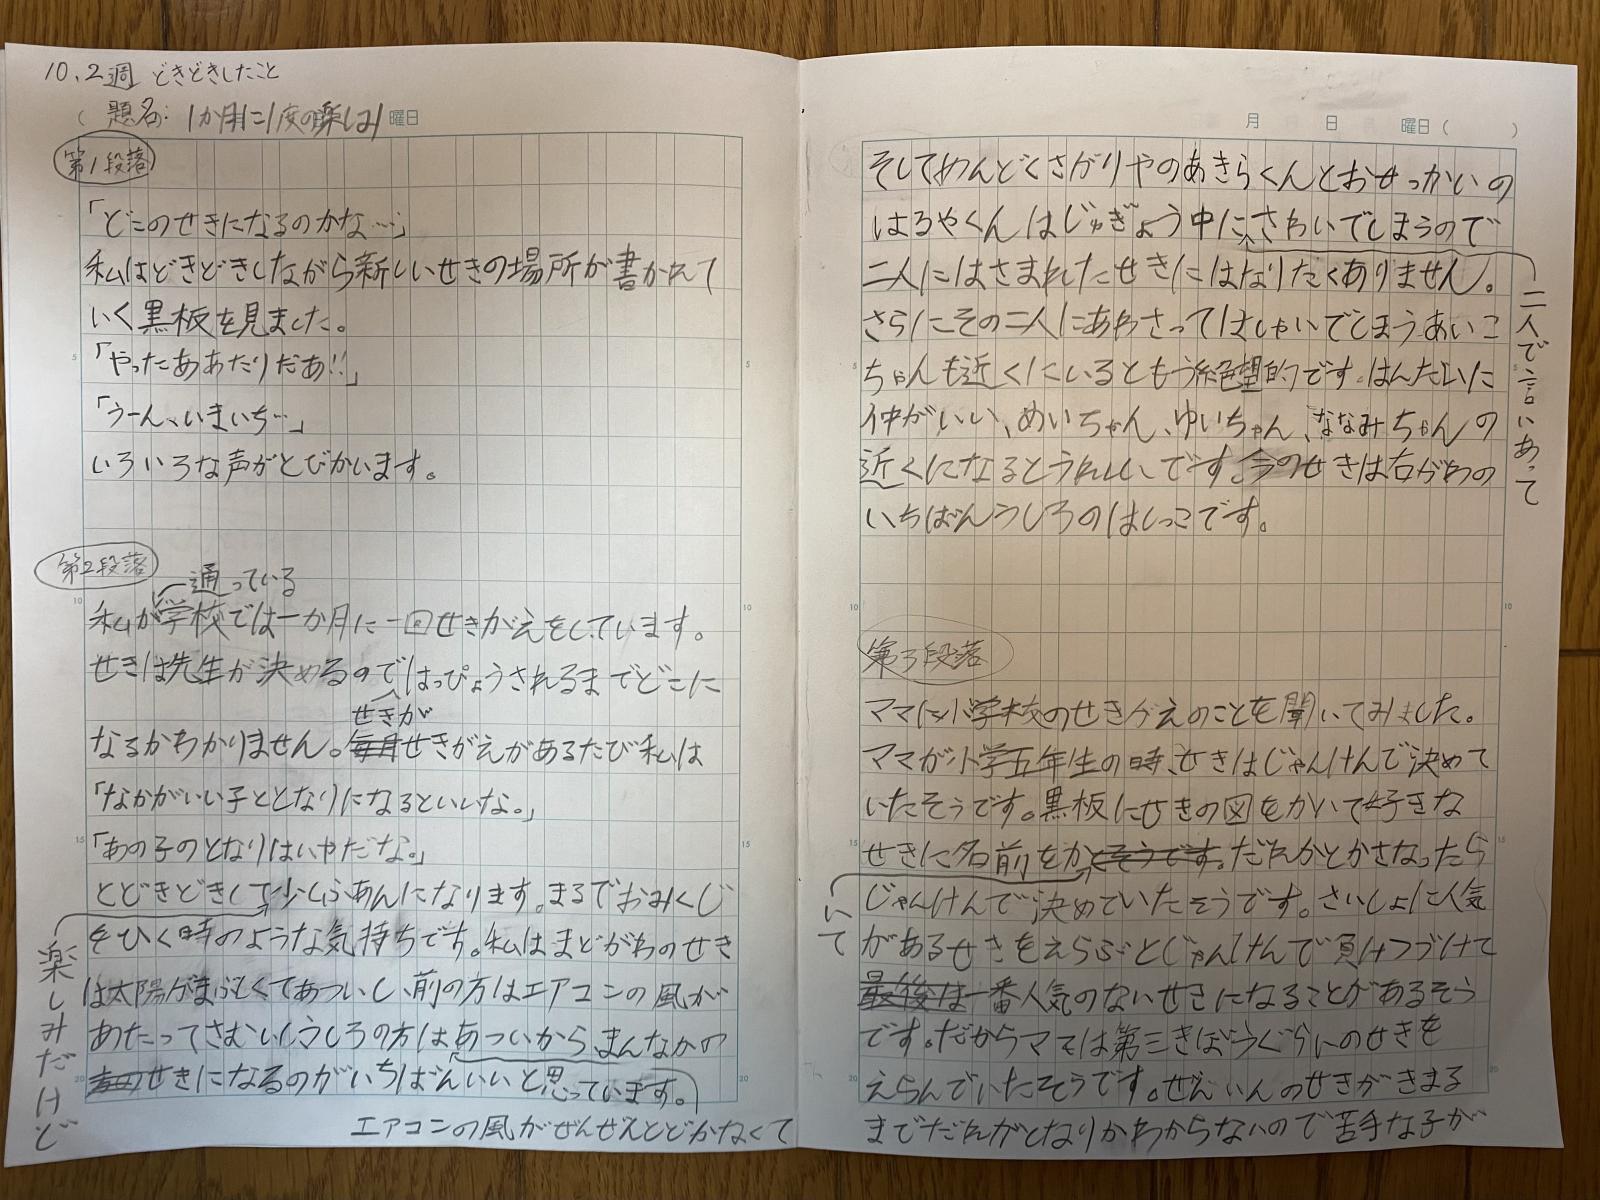 10.2週 どきどきしたこと
( 題名:1か月に1度の楽しみ 曜日
第1段落
「どこのせきになるのかな…」
私はどきどきしながら新しいせきの場所が書かれて
いく黒板を見ました。
「やったああたりだあ!!」
「うーん、いまいち…」
いろいろな声がとびかいます。
第2段落
通っている
私が学校では一か月に一回せきがえをしています。
せきは先生が決めるのではっぴょうされるまでどこに
せきが
なるかわかりません。毎月せきがえがあるたび私は
「なかがいい子ととなりになるといいな。」
「あの子のとなりはいやだな。」
とどきどきして少しふあんになります。まるでおみくじ
をひく時のような気持ちです。私はまどがわのせき
は太陽がまぶしくてあついし、前の方はエアコンの風が
あたってさむいしうしろの方はあついから、まんなかの
せきになるのがいちばんいいと思っています。
エアコンの風がぜんぜんとどかなくて
楽しみだけど
月 日 曜日( )
そしてめんどくさがりやのあきらくんとおせっかいの
はるやくんはじゅぎょう中にさわいでしまうので
二人にはさまれたせきにはなりたくありません。
さらにその二人にあわさってはしゃいでしまうあいこ
ちゃんも近くにいるともう絶望的です。はんたいに
仲がいい、めいちゃん、ゆいちゃん、ななみちゃんの
近くになるとうれしいです。今のせきは右がわの
いちばんうしろのはしっこです。
二人で言いあって
第3段落
ママに小学校のせきがえのことを聞いてみました。
ママが小学五年生の時、せきはじゃんけんで決めて
いたそうです。黒板にせきの図をかいて好きな
せきに名前をかくそうです。だれかとかさなったら
じゃんけんで決めていたそうです。さいしょに人気
があるせきをえらぶとじゃんけんで負けつづけて
最後は一番人気のないせきになることがあるそう
です。だからママは第三きぼうぐらいのせきを
えらんでいたそうです。ぜんいんのせきがきまる
までだれがとなりかわからないので苦手な子が
いて